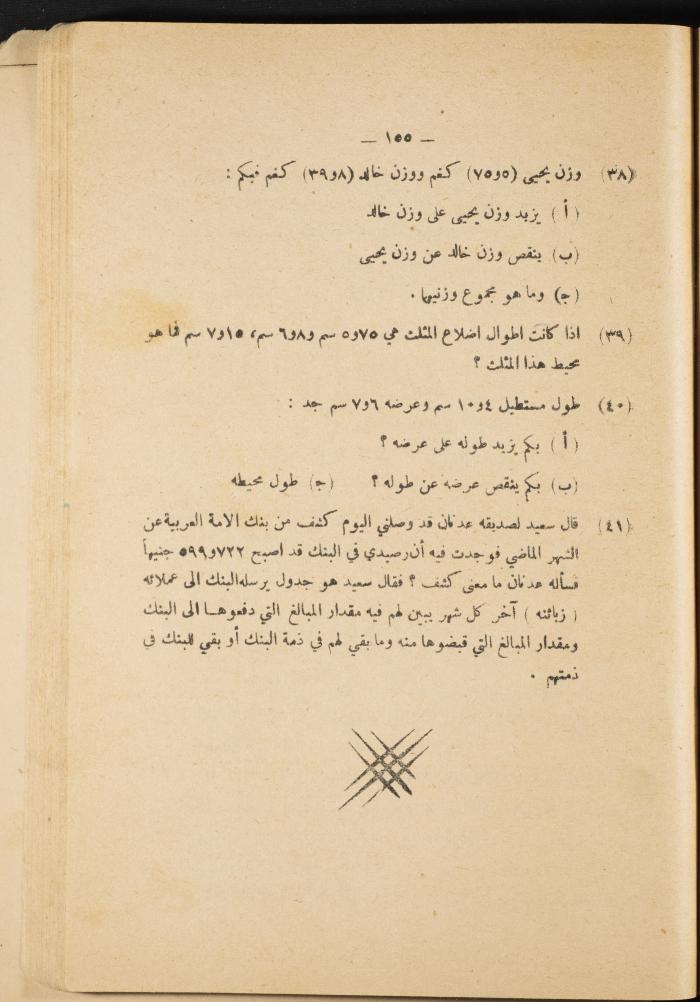 — ١٥٥ —
(٣٨) وزن يحيى (٥و٧٥) كغم ووزن خالد (٨و٣٩) كغم فبكم :
( أ ) يزيد وزن يحيى على وزن خالد
(ب) ينقص وزن خالد عن وزن يحيى
(ج) وما هو مجموع وزنيهما .
(٣٩) اذا كانت اطوال اضلاع المثلث هي ٧٥و٥ سم و٨و٦ سم، ١٥و٧ سم فما هو
محيط هذا المثلث ؟
(٤٠) طول مستطيل ٤و١٠ سم وعرضه ٦و٧ سم جد :
( أ ) بكم يزيد طوله على عرضه ؟
(ب) بكم ينقص عرضه عن طوله ؟ (ج) طول محيطه
(٤١) قال سعيد لصديقه عدنان قد وصلني اليوم كشف من بنك الامة العربية عن
الشهر الماضي فوجدت فيه أن رصيدي في البنك قد اصبح ٧٢٢و٥٩٩ جنيهاً
فسأله عدنان ما معنى كشف ؟ فقال سعيد هو جدول يرسله البنك الى عملائه
( زبائنه ) آخر كل شهر يبين لهم فيه مقدار المبالغ التي دفعوها الى البنك
ومقدار المبالغ التي قبضوها منه وما بقي لهم في ذمة البنك أو بقي للبنك في
ذمتهم .